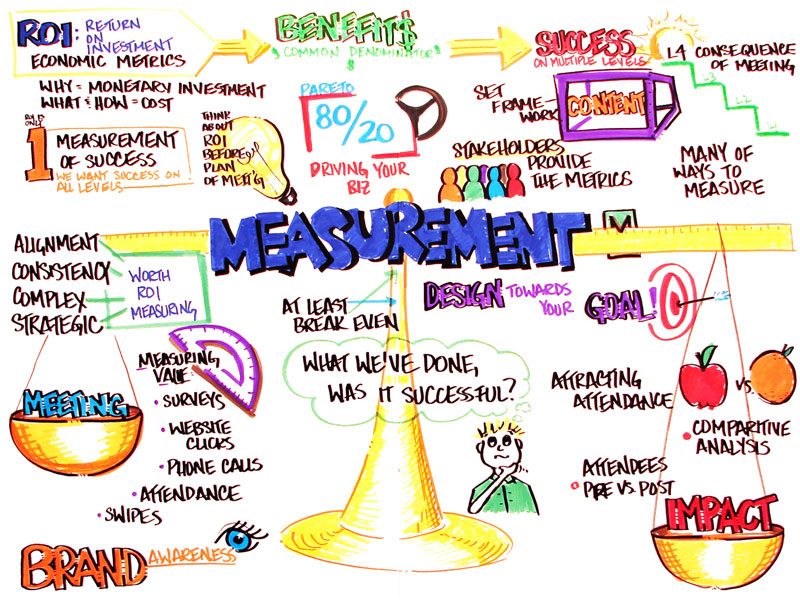 ROI: RETURN
ON
INVESTMENT
ECONOMIC METRICS
BENEFIT$
$ COMMON DENOMINATOR $
$
SUCCESS
ON MULTIPLE LEVELS
L4 CONSEQUENCE
OF MEETING
L3
L2
L1
WHY = MONETARY INVESTMENT
WHAT & HOW = COST
ONLY
1 MEASUREMENT
OF SUCCESS
WE WANT SUCCESS ON
ALL LEVELS
THINK
ABOUT
ROI
BEFORE
PLAN
OF MEET'G
PARETO
80/20
DRIVING YOUR
BIZ
SET
FRAME-
WORK
CONTENT
STAKEHOLDERS
PROVIDE
THE METRICS
MANY OF
WAYS TO
MEASURE
MEASUREMENT
ALIGNMENT
CONSISTENCY
COMPLEX
STRATEGIC
WORTH
ROI
MEASURING
AT LEAST
BREAK EVEN
DESIGN TOWARDS
YOUR
GOAL!
MEASURING
VALUE
• SURVEYS
• WEBSITE
CLICKS
• PHONE CALLS
• ATTENDANCE
• SWIPES
MEETING
WHAT WE'VE DONE,
WAS IT SUCCESSFUL?
ATTRACTING
ATTENDANCE
VS.
• COMPARITIVE
ANALYSIS
ATTENDEES
• PRE VS. POST
IMPACT
BRAND AWARENESS